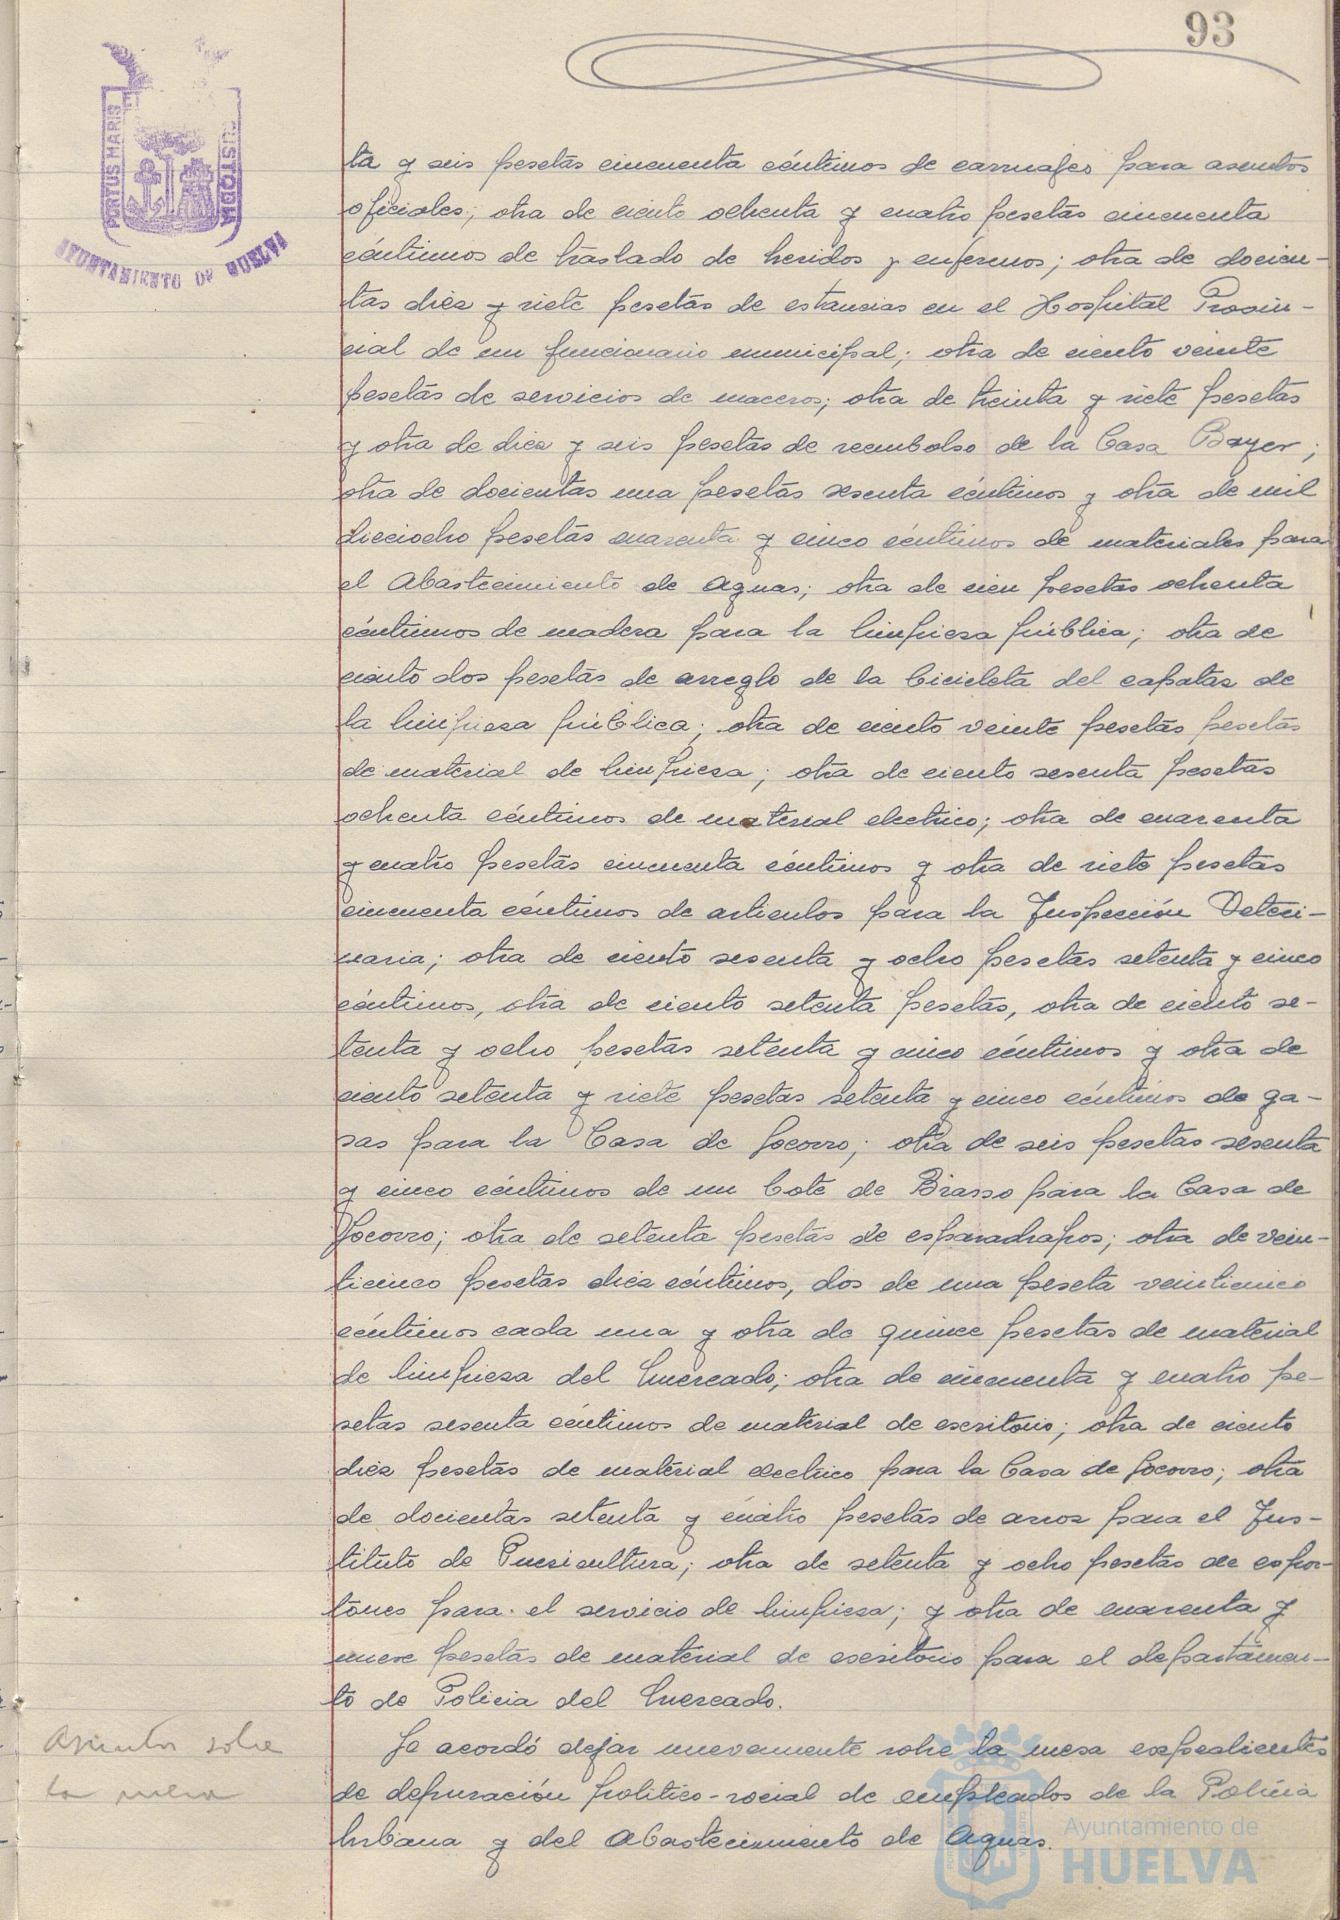 93
PORTUS MARIS ET CUSTODIA
AYUNTAMIENTO DE HUELVA
ta y seis pesetas cincuenta céntimos de carruajes para asuntos
oficiales; otra de ciento ochenta y cuatro pesetas cincuenta
céntimos de traslado de heridos y enfermos; otra de docien-
tas diez y siete pesetas de estancias en el Hospital Provin-
cial de un funcionario municipal; otra de ciento veinte
pesetas de servicios de maceros; otra de treinta y siete pesetas
y otra de diez y seis pesetas de reembolso de la Casa Bayer;
otra de docientas una pesetas sesenta céntimos y otra de mil
dieciocho pesetas cuarenta y cinco céntimos de materiales para
el Abastecimiento de Aguas; otra de cien pesetas ochenta
céntimos de madera para la limpieza pública; otra de
ciento dos pesetas de arreglo de la bicicleta del capataz de
la limpieza pública; otra de ciento veinte pesetas pesetas
de material de limpieza; otra de ciento sesenta pesetas
ochenta céntimos de material electrico; otra de cuarenta
y cuatro pesetas cincuenta céntimos y otra de siete pesetas
cincuenta céntimos de articulos para la Inspección Veteri-
naria; otra de ciento sesenta y ocho pesetas setenta y cinco
céntimos, otra de ciento setenta pesetas, otra de ciento se-
tenta y ocho pesetas setenta y cinco céntimos y otra de
ciento setenta y siete pesetas setenta y cinco céntimos de ga-
sas para la Casa de Socorro; otra de seis pesetas sesenta
y cinco céntimos de un bote de Brasso para la Casa de
Socorro; otra de setenta pesetas de esparadrapos; otra de vein-
ticinco pesetas diez céntimos, dos de una peseta veinticinco
céntimos cada una y otra de quince pesetas de material
de limpieza del Mercado; otra de cincuenta y cuatro pe-
setas sesenta céntimos de material de escritorio; otra de ciento
diez pesetas de material electrico para la Casa de Socorro; otra
de docientas setenta y cuatro pesetas de arroz para el Ins-
tituto de Puericultura; otra de setenta y ocho pesetas de espor-
tones para el servicio de limpieza; y otra de cuarenta y
nueve pesetas de material de escritorio para el departamen-
to de Policia del Mercado.
Asuntos sobre
la mesa
Se acordó dejar nuevamente sobre la mesa expedientes
de depuración politico-social de empleados de la Policia
Urbana y del Abastecimiento de Aguas.
Ayuntamiento de
HUELVA